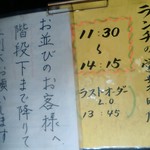 ランチの営業時間
11:30
～
14:15
ラストオーダー
L.O
13:45
お並びのお客様へ
階段下まで降りて
お願いします